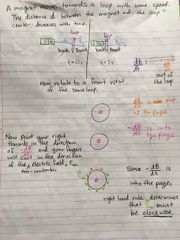 A magnet moves towards a loop with some speed.
The distance d between the magnet and the loop's
center decreases with time.
back | front
back | front
t=0s
t=1s
out of
the loop
now, rotate to a front view
of the same loop.
is out
of the page
is into
the page
Now point your right
thumb in the direction
of dB/dt and your fingers
will curl in the direction
of the electric field, E
non-coulombic
Since -dB/dt is
into the page,
right hand rule determines
that E must
be clockwise.